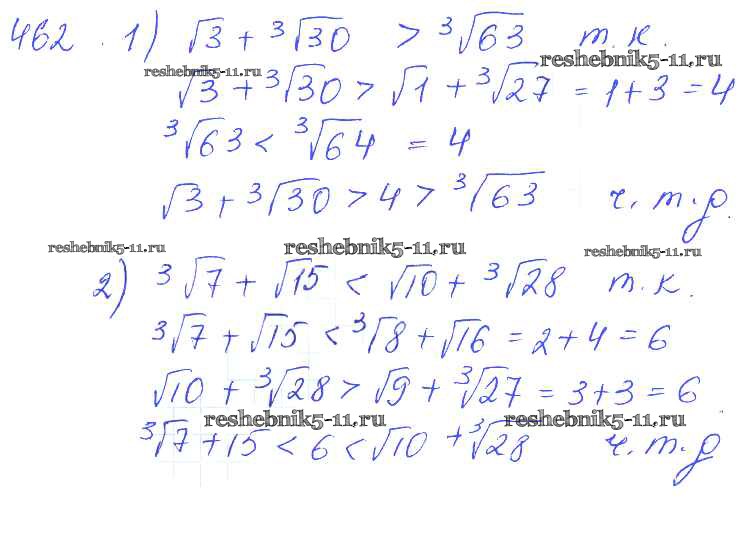 462. 1) √3 + ³√30 > ³√63 т.к.
reshebnik5-11.ru reshebnik5-11.ru
√3 + ³√30 > √1 + ³√27 = 1+3 = 4
³√63 < ³√64 = 4
√3 + ³√30 > 4 > ³√63 ч.т.д.
reshebnik5-11.ru reshebnik5-11.ru reshebnik5-11.ru
2) ³√7 + √15 < √10 + ³√28 т.к.
³√7 + √15 < ³√8 + √16 = 2+4 = 6
√10 + ³√28 > √9 + ³√27 = 3+3 = 6
reshebnik5-11.ru reshebnik5-11.ru
³√7 + 15 < 6 < √10 + ³√28 ч.т.д